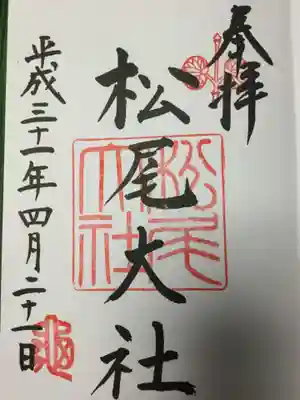 奉拝
松尾大社
松尾大社
平成三十一年四月二十一日